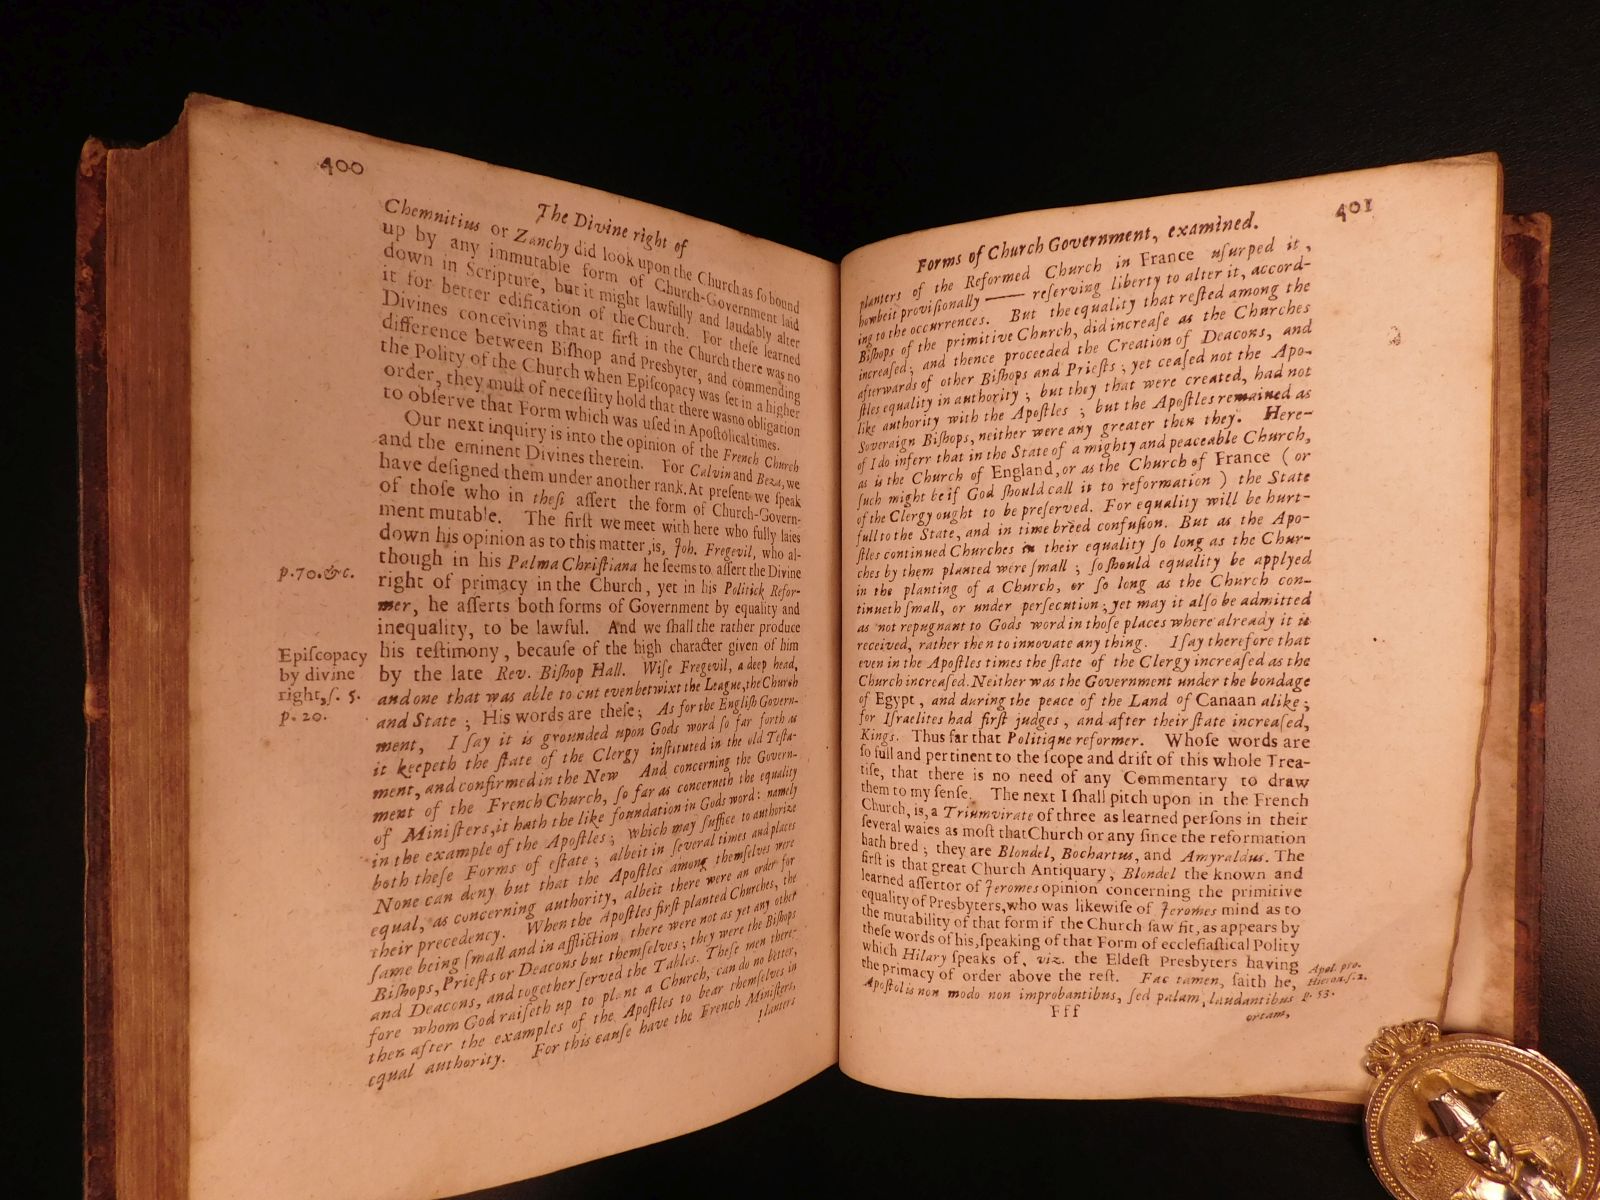 400
The Divine right of
Chemnitius or Zanchy did look upon the Church as ſo bound
up by any immutable form of Church-Government laid
down in Scripture, but it might lawfully and laudably alter
it for better edification of the Church. For theſe learned
Divines conceiving that at firſt in the Church there was no
difference between Biſhop and Presbyter, and commending
the Polity of the Church when Epiſcopacy was ſet in a higher
order, they muſt of neceſſity hold that there was no obligation
to obſerve that Form which was uſed in Apoſtolical times.
Our next inquiry is into the opinion of the French Church
and the eminent Divines therein. For Calvin and Beza, we
have deſigned them under another rank. At preſent we ſpeak
of thoſe who in theſi aſſert the form of Church-Govern-
ment mutable. The firſt we meet with here who fully laies
down his opinion as to this matter, is, Joh. Fregevil, who al-
though in his Palma Chriſtiana he ſeems to aſſert the Divine
right of primacy in the Church, yet in his Politick Refor-
p.70.&c.
mer, he aſſerts both forms of Government by equality and
inequality, to be lawful. And we ſhall the rather produce
his teſtimony, becauſe of the high character given of him
by the late Rev. Biſhop Hall. Wiſe Fregevil, a deep head,
Epiſcopacy
by divine
right, ſ. 5.
p. 20.
and one that was able to cut even betwixt the League, the Church
and State; His words are theſe; As for the Engliſh Govern-
ment, I ſay it is grounded upon Gods word ſo far forth as
it keepeth the ſtate of the Clergy inſtituted in the old Teſta-
ment, and confirmed in the New And concerning the Govern-
ment of the French Church, ſo far as concerneth the equality
of Miniſters, it hath the like foundation in Gods word: namely
in the example of the Apoſtles; which may ſuffice to authorize
both theſe Forms of eſtate; albeit in ſeveral times and places
None can deny but that the Apoſtles among themſelves were
equal, as concerning authority, albeit there were an order for
their precedency. When the Apoſtles firſt planted Churches, the
ſame being ſmall and in affliction, there were not as yet any other
Biſhops, Prieſts or Deacons but themſelves; they were the Biſhops
and Deacons, and together ſerved the Tables. Theſe men there-
fore whom God raiſeth up to plant a Church, can do no better,
then after the examples of the Apoſtles to bear themſelves in
equal authority. For this cauſe have the French Miniſters,
planters
401
Forms of Church Government, examined.
planters of the Reformed Church in France uſurped it,
howbeit proviſionally —— reſerving liberty to alter it, accord-
ing to the occurrences. But the equality that reſted among the
Biſhops of the primitive Church, did increaſe as the Churches
increaſed; and thence proceeded the Creation of Deacons, and
afterwards of other Biſhops and Prieſts; yet ceaſed not the Apo-
ſtles equality in authority; but they that were created, had not
like authority with the Apoſtles; but the Apoſtles remained as
Soveraign Biſhops, neither were any greater then they. Here-
of I do inferr that in the State of a mighty and peaceable Church,
as is the Church of England, or as the Church of France (or
ſuch might be if God ſhould call it to reformation) the State
of the Clergy ought to be preſerved. For equality will be hurt-
full to the State, and in time breed confuſion. But as the Apo-
ſtles continued Churches in their equality ſo long as the Chur-
ches by them planted were ſmall; ſo ſhould equality be applyed
in the planting of a Church, or ſo long as the Church con-
tinueth ſmall, or under perſecution; yet may it alſo be admitted
as not repugnant to Gods word in thoſe places where already it is
received, rather then to innovate any thing. I ſay therefore that
even in the Apoſtles times the ſtate of the Clergy increaſed as the
Church increaſed. Neither was the Government under the bondage
of Egypt, and during the peace of the Land of Canaan alike;
for Iſraelites had firſt judges, and after their ſtate increaſed,
Kings. Thus far that Politique reformer. Whoſe words are
ſo full and pertinent to the ſcope and drift of this whole Trea-
tiſe, that there is no need of any Commentary to draw
them to my ſenſe. The next I ſhall pitch upon in the French
Church, is, a Triumvirate of three as learned perſons in their
ſeveral waies as moſt that Church or any ſince the reformation
hath bred; they are Blondel, Bochartus, and Amyraldus. The
firſt is that great Church Antiquary, Blondel the known and
learned aſſertor of Jeromes opinion concerning the primitive
equality of Presbyters, who was likewiſe of Jeromes mind as to
the mutability of that form if the Church ſaw fit, as appears by
theſe words of his, ſpeaking of that Form of eccleſiaſtical Polity
which Hilary ſpeaks of, viz. the Eldeſt Presbyters having
the primacy of order above the reſt. Fac tamen, ſaith he,
Apol. pro.
Hieron. ſ. 2.
p. 53.
Apoſtolis non modo non improbantibus, ſed palam, laudantibus
Fff
ortam,